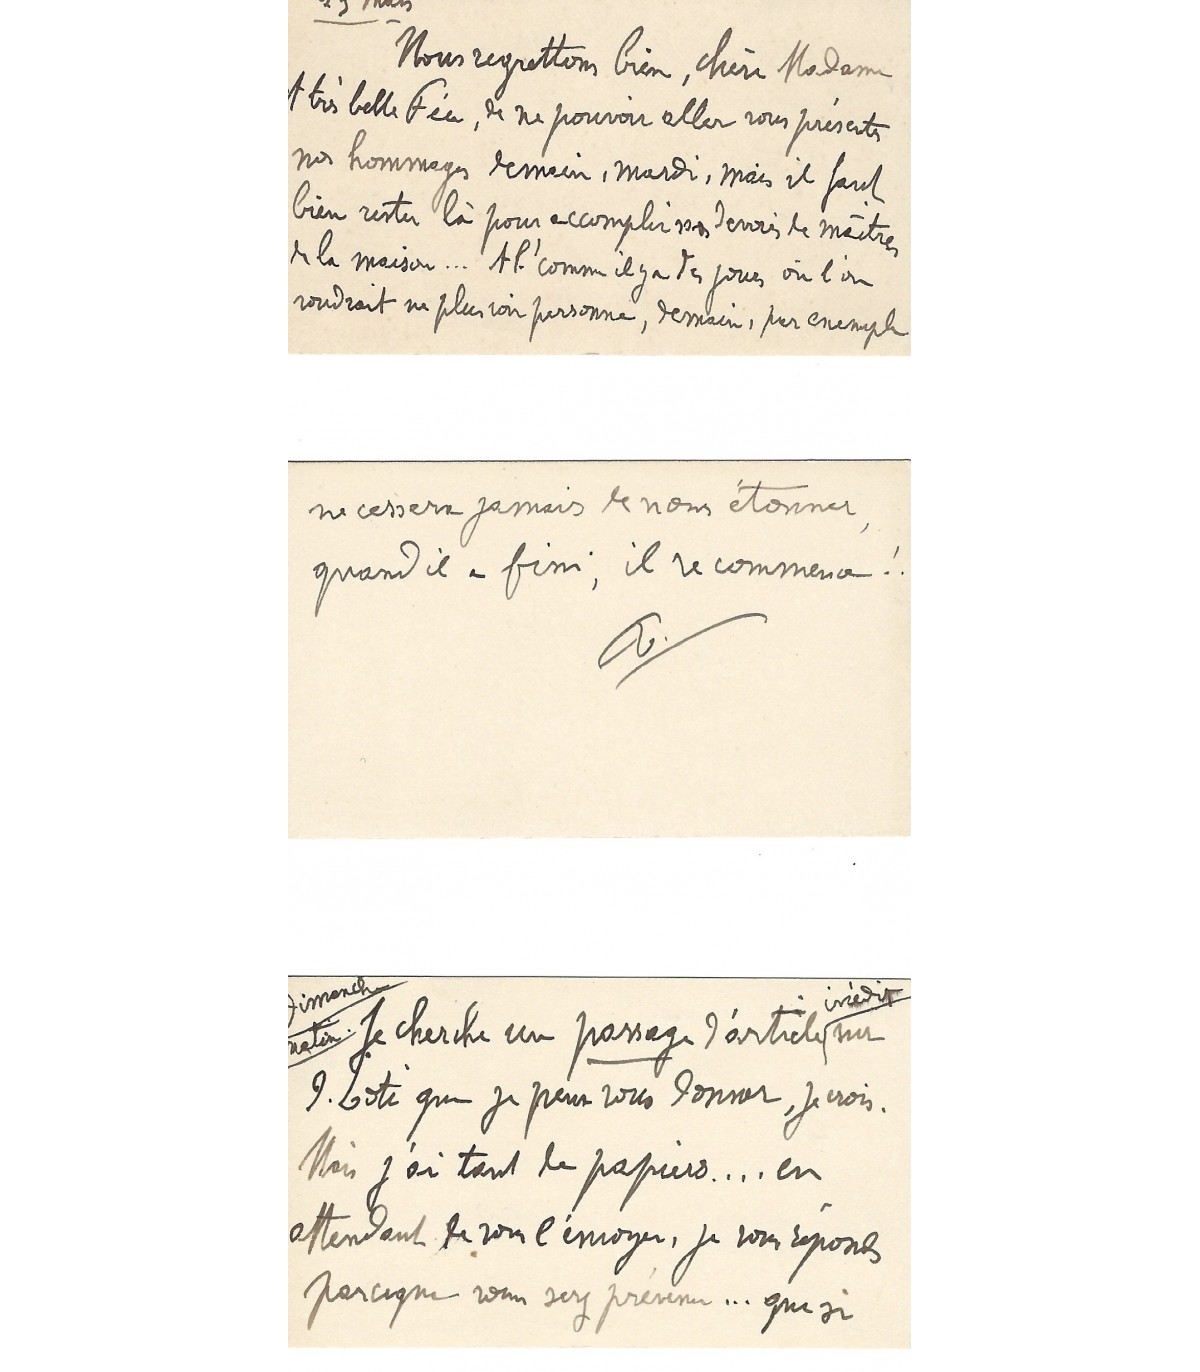 mars
Nous regrettons bien, chère Madame
& très belle Fée, de ne pouvoir aller vous présenter
nos hommages demain, mardi, mais il faut
bien rester là pour accomplir nos devoirs de maîtres
de la maison... comme il y a des jours où l'on
voudrait ne plus voir personne, demain, par exemple
ne cessera jamais de nous étonner,
quand il a fini, il recommence !.
Dimanche
matin.
inédit
Je cherche un passage d'article sur
P. Loti que je peux vous donner, je crois.
Mais j'ai tant de papiers.... en
attendant de vous l'envoyer, je vous réponds
parceque vous serez prévenue... que si